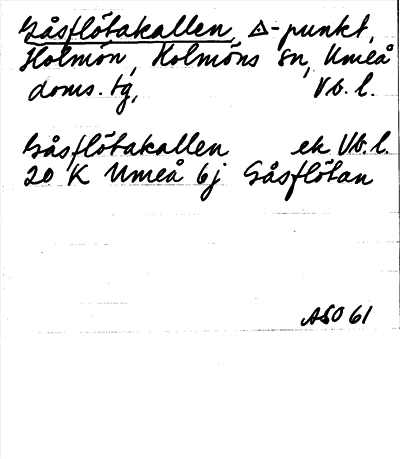 Gåsflötakallen, △-punkt,
Holmön, Holmöns sn, Umeå
doms. tg, Vb. l.
Gåsflötakallen ek Vb. l.
20 K Umeå 6j Gåsflötan
ASO 61